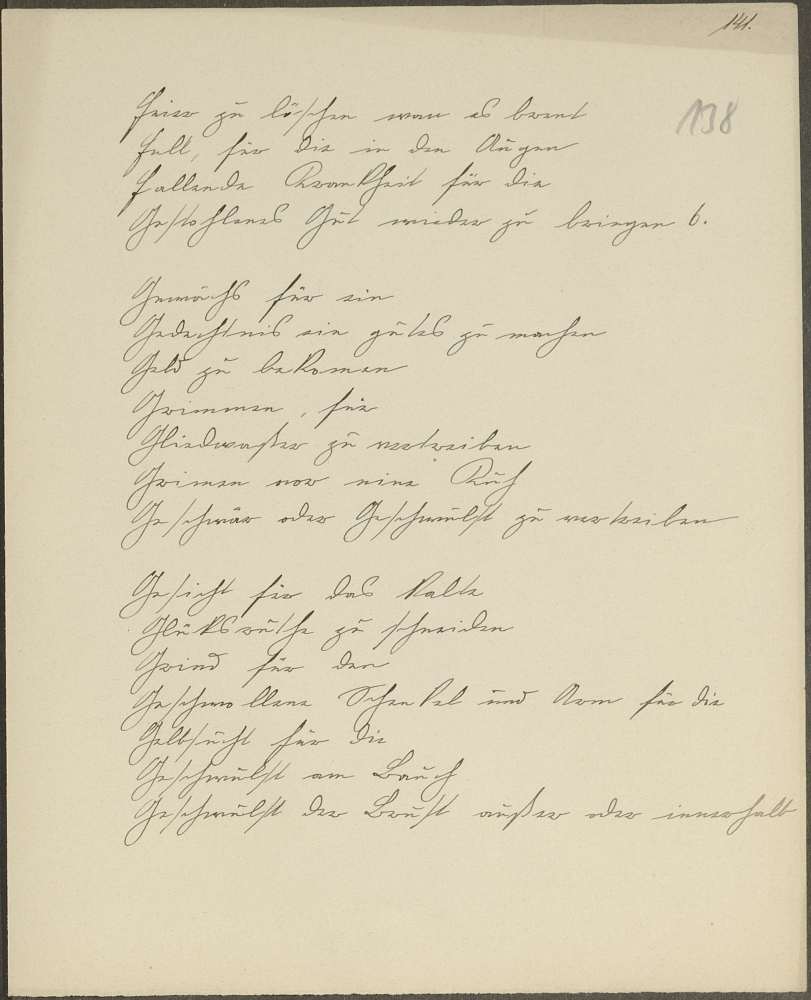 141.
138
Feier zu löschen wan es brent
Fell, für die in den Augen
Fallende Krankheit für die
Gestohlenes Gut wieder zu bringen 6.
Gewächs für ein
Gedechtnis ein gutes zu machen
Geld zu bekomen
Grimmen, für
Gliedwaßer zu vertreiben
Grimen vor eine Kuh
Geschwär oder Geschwulst zu vertreiben
Gesicht für das kalte
Glüksruthe zu schneiden
Grind für den
Geschwollene Schenkel und Arm für die
Gelbsucht für die
Geschwulst am Bauch
Geschwulst der Brust außer oder innerhalt